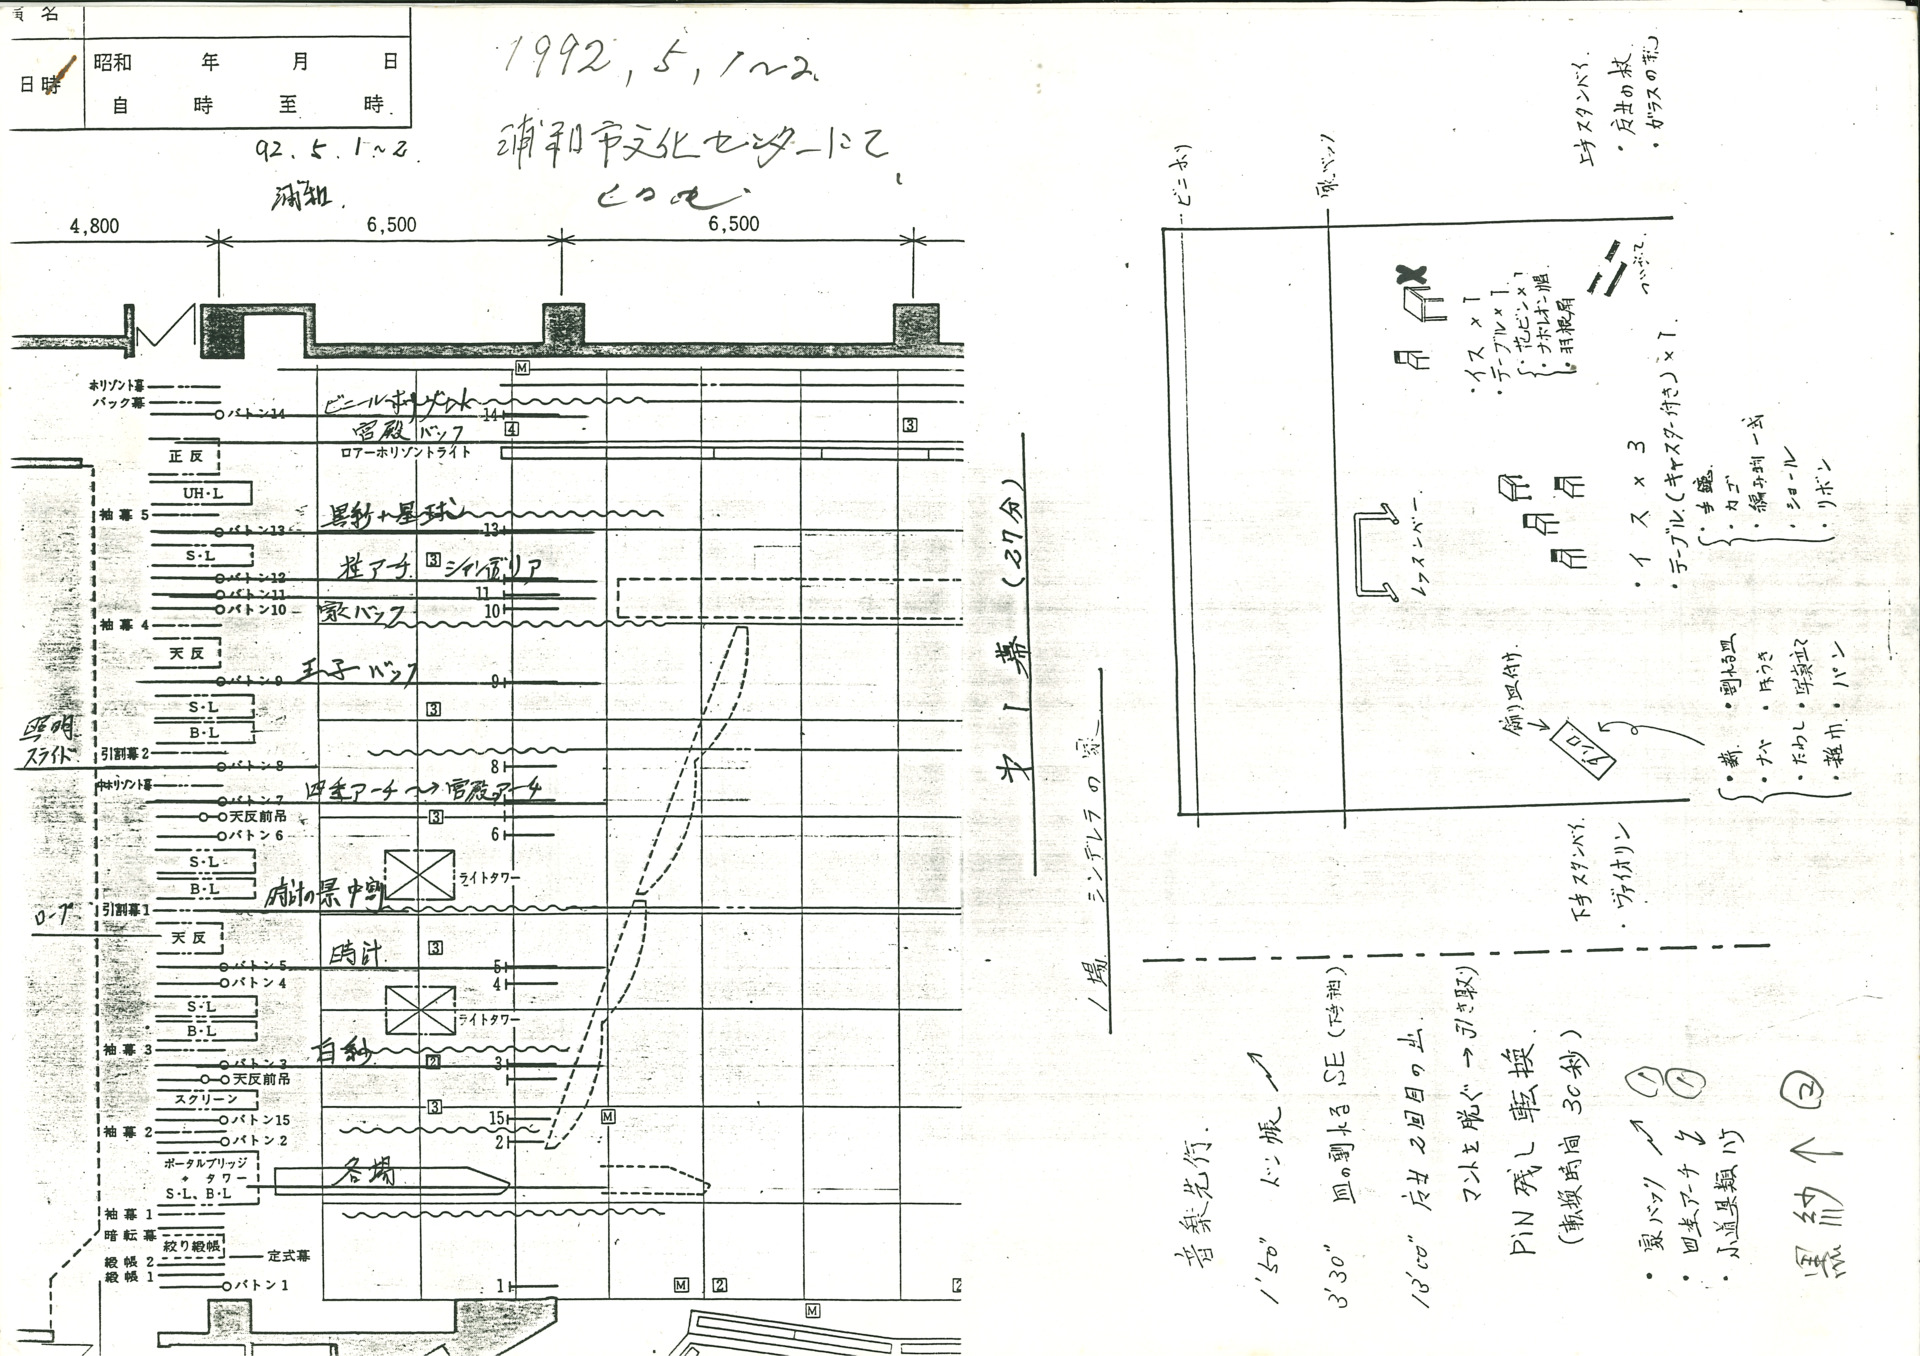 名
日時
昭和 年 月 日
自 時 至 時
1992,5,1~2.
浦和市文化センターにて
92.5.1~2.
浦和.
4,800
6,500
6,500
M
ホリゾント幕
バック幕
バトン14
ビニールホリゾント
14
宮殿バック
4
3
正反
ロアーホリゾントライト
UH・L
袖幕5
黒紗+星球
バトン13
13
S・L
柱アーチ
3
シャンデリア
バトン12
バトン11
11
バトン10
家バック
10
袖幕4
天反
王子バック
バトン9
9
S・L
3
B・L
照明
スライド
引割幕2
バトン8
8
中ホリゾント幕
四季アーチ~→宮殿アーチ
バトン7
天反前吊
3
バトン6
6
S・L
ライトタワー
B・L
時計の景中割
ロープ
引割幕1
天反
時計
3
バトン5
5
バトン4
4
S・L
ライトタワー
B・L
袖幕3
白紗
バトン3
2
3
天反前吊
スクリーン
3
バトン15
15
M
袖幕2
バトン2
2
ポータルブリッジ
+ タワー
S・L、B・L
各場
袖幕1
暗転幕
絞り緞帳
定式幕
緞帳2
緞帳1
バトン1
1
M
2
M
2
才1幕(27分)
1場 シンデレラの家
ビニホリ
家バック
上手スタンバイ
・仙女の杖
・ガラスの靴
・イス×1
・テーブル×1
・花ビン×1
・ナポレオン帽
・羽根扇
ついたて
レッスンバー
・イス×3
・テーブル(キャスター付き)×1
・手鏡
・カゴ
・編み物一式
・ショール
・リボン
飾り皿付け
・薪 ・割れる皿
・ナベ ・ほうき
・たわし ・写真立て
・雑巾 ・パン
下手スタンバイ
・ヴァイオリン
音楽先行.
1'50" ドン帳↗
3'30" 皿の割れるSE(下手袖)
13'00" 仙女2回目の出.
マントを脱ぐ→引き取り
PiN残し転換.
(転換時間30秒)
・家バック↗①
・四季アーチ↙①
・小道具類ハケ
黒紗↑②